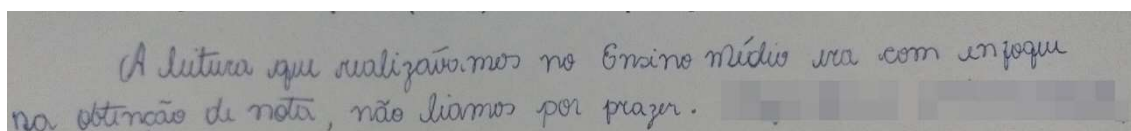 A leitura que realizávamos no Ensino médio era com enfoque
na obtenção de nota, não líamos por prazer.